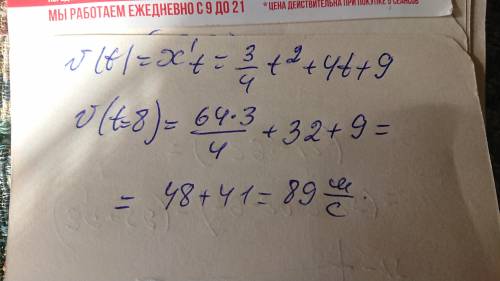 МЫ РАБОТАЕМ ЕЖЕДНЕВНО С 9 ДО 21
* ЦЕНА ДЕЙСТВИТЕЛЬНА ПРИ ПОКУПКЕ 5 СЕАНСОВ
v(t) = x't = 3/4 t² + 4t + 9
v(t=8) = 64·3/4 + 32 + 9 =
= 48 + 41 = 89 м/с.